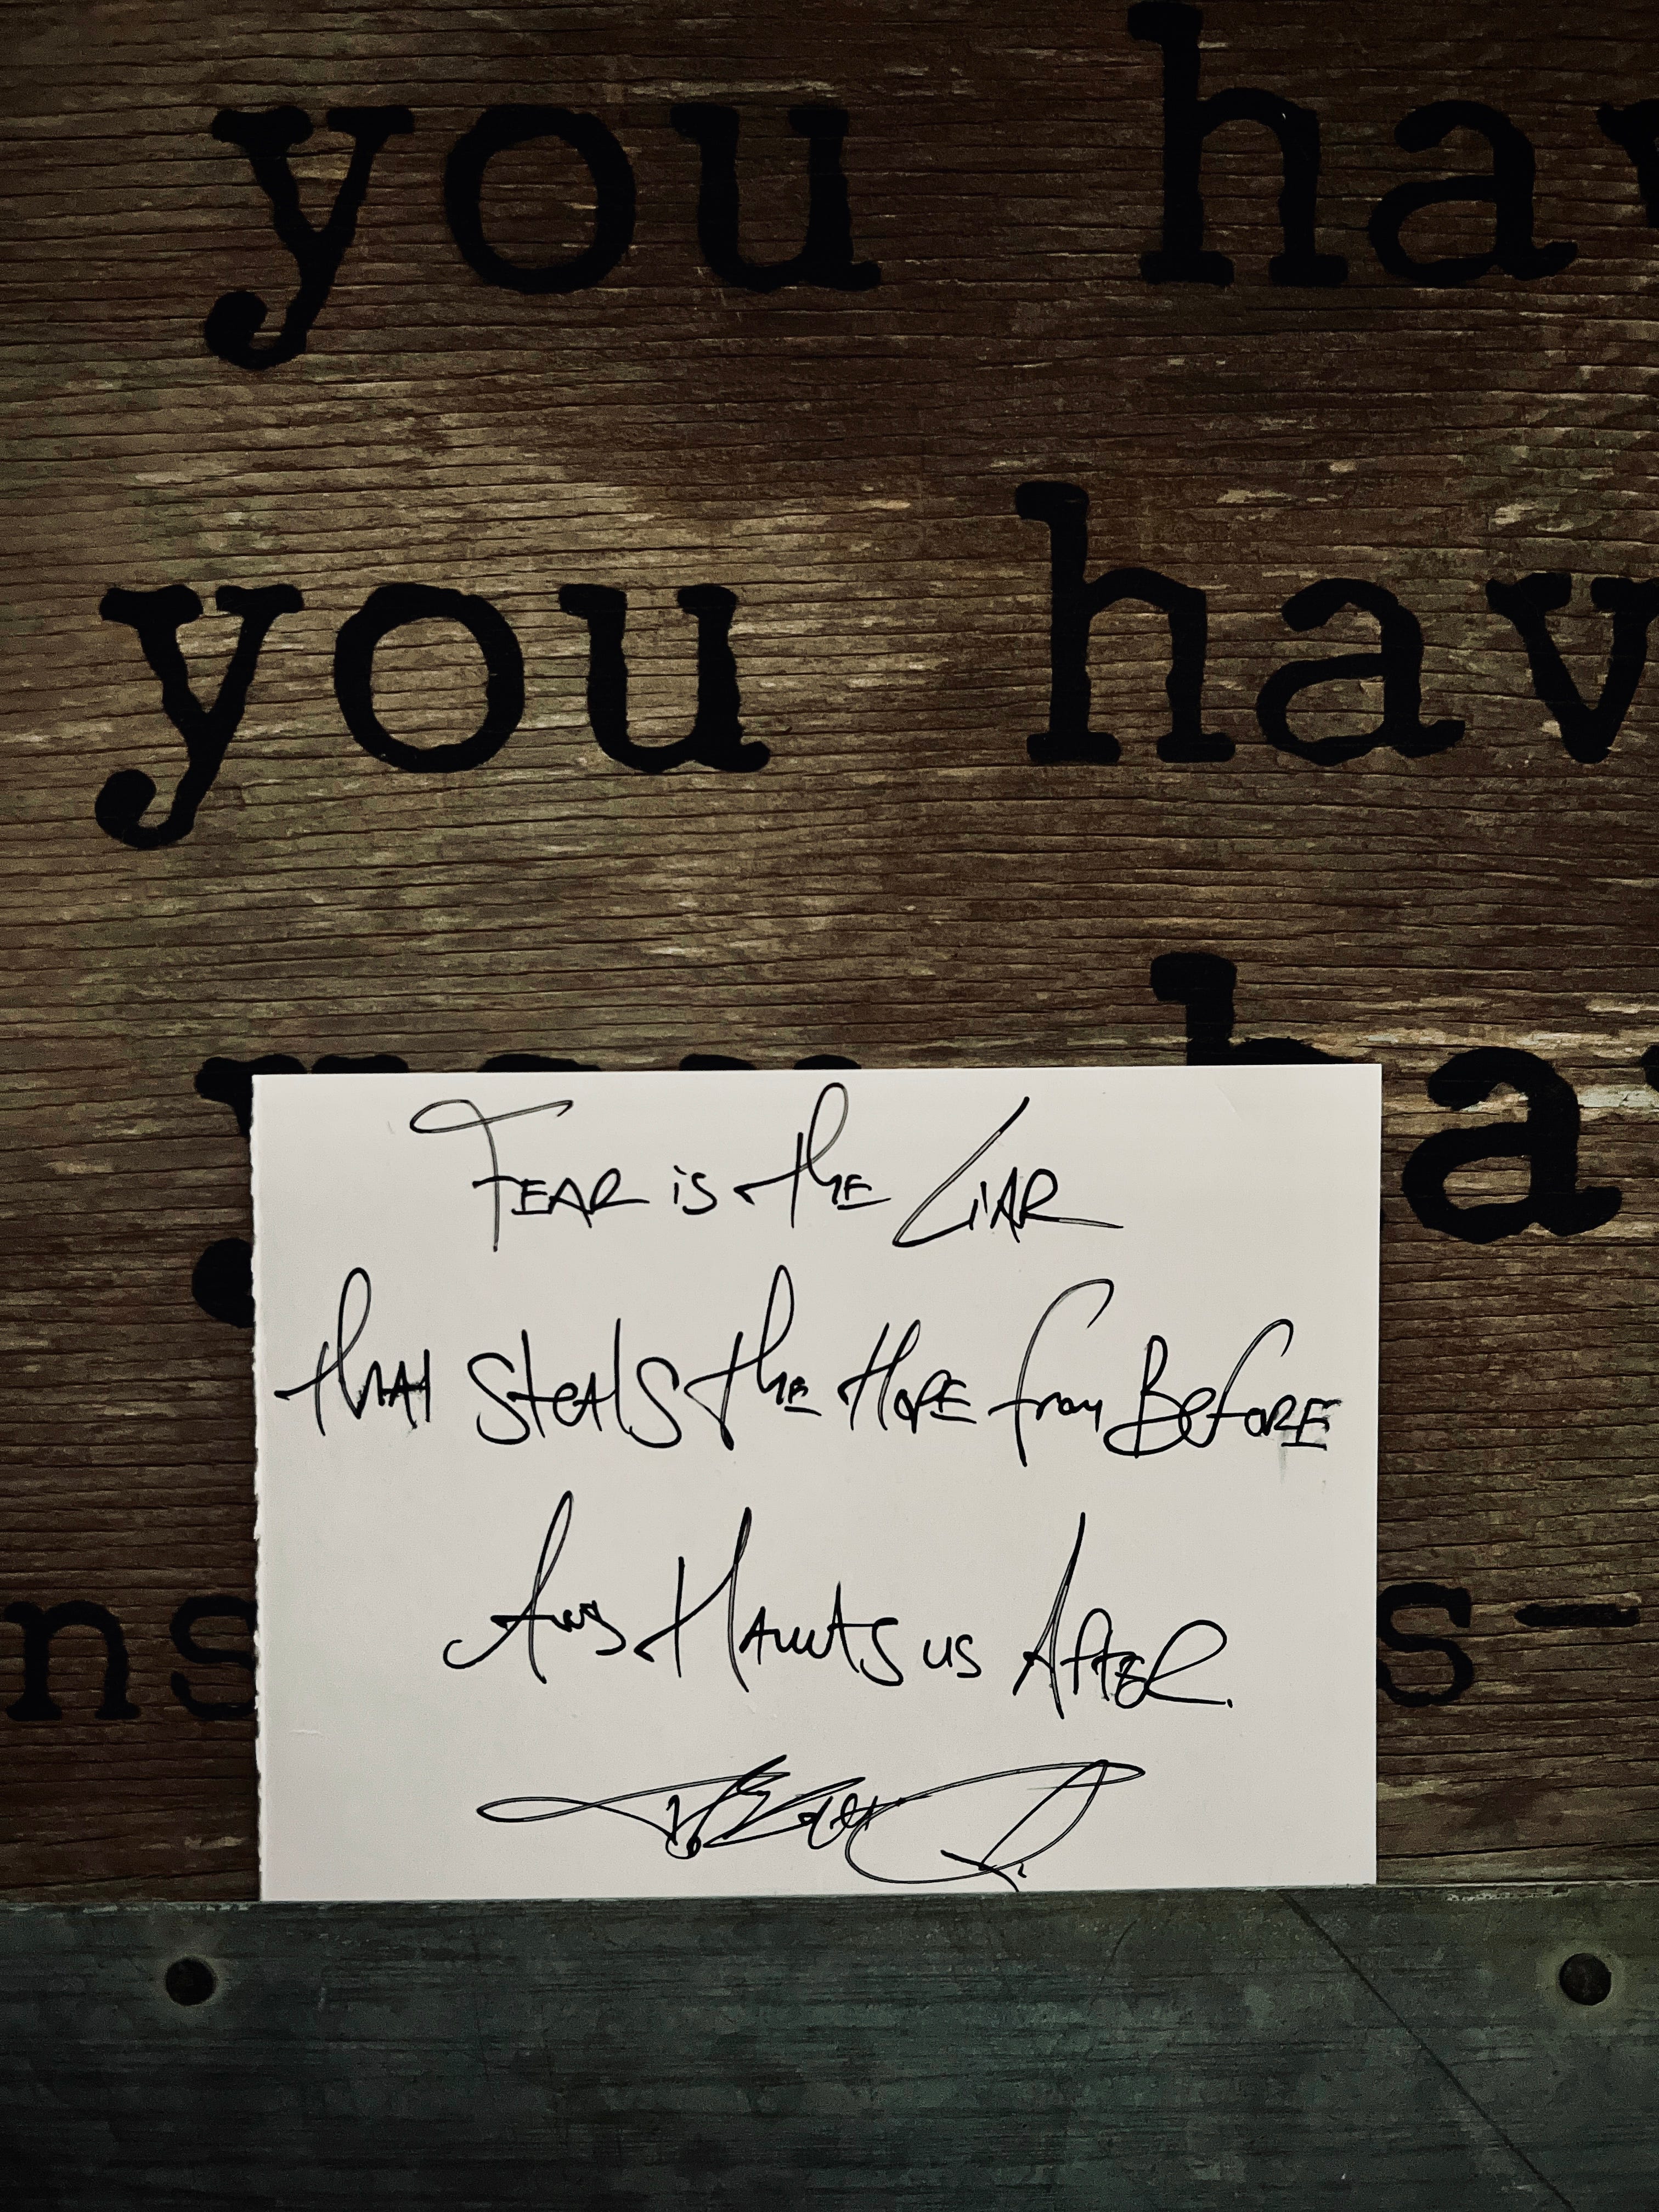 you hav
you hav
a
Fear is the Liar
that steals the Hope from Before
ns
And Haunts us After.
s-